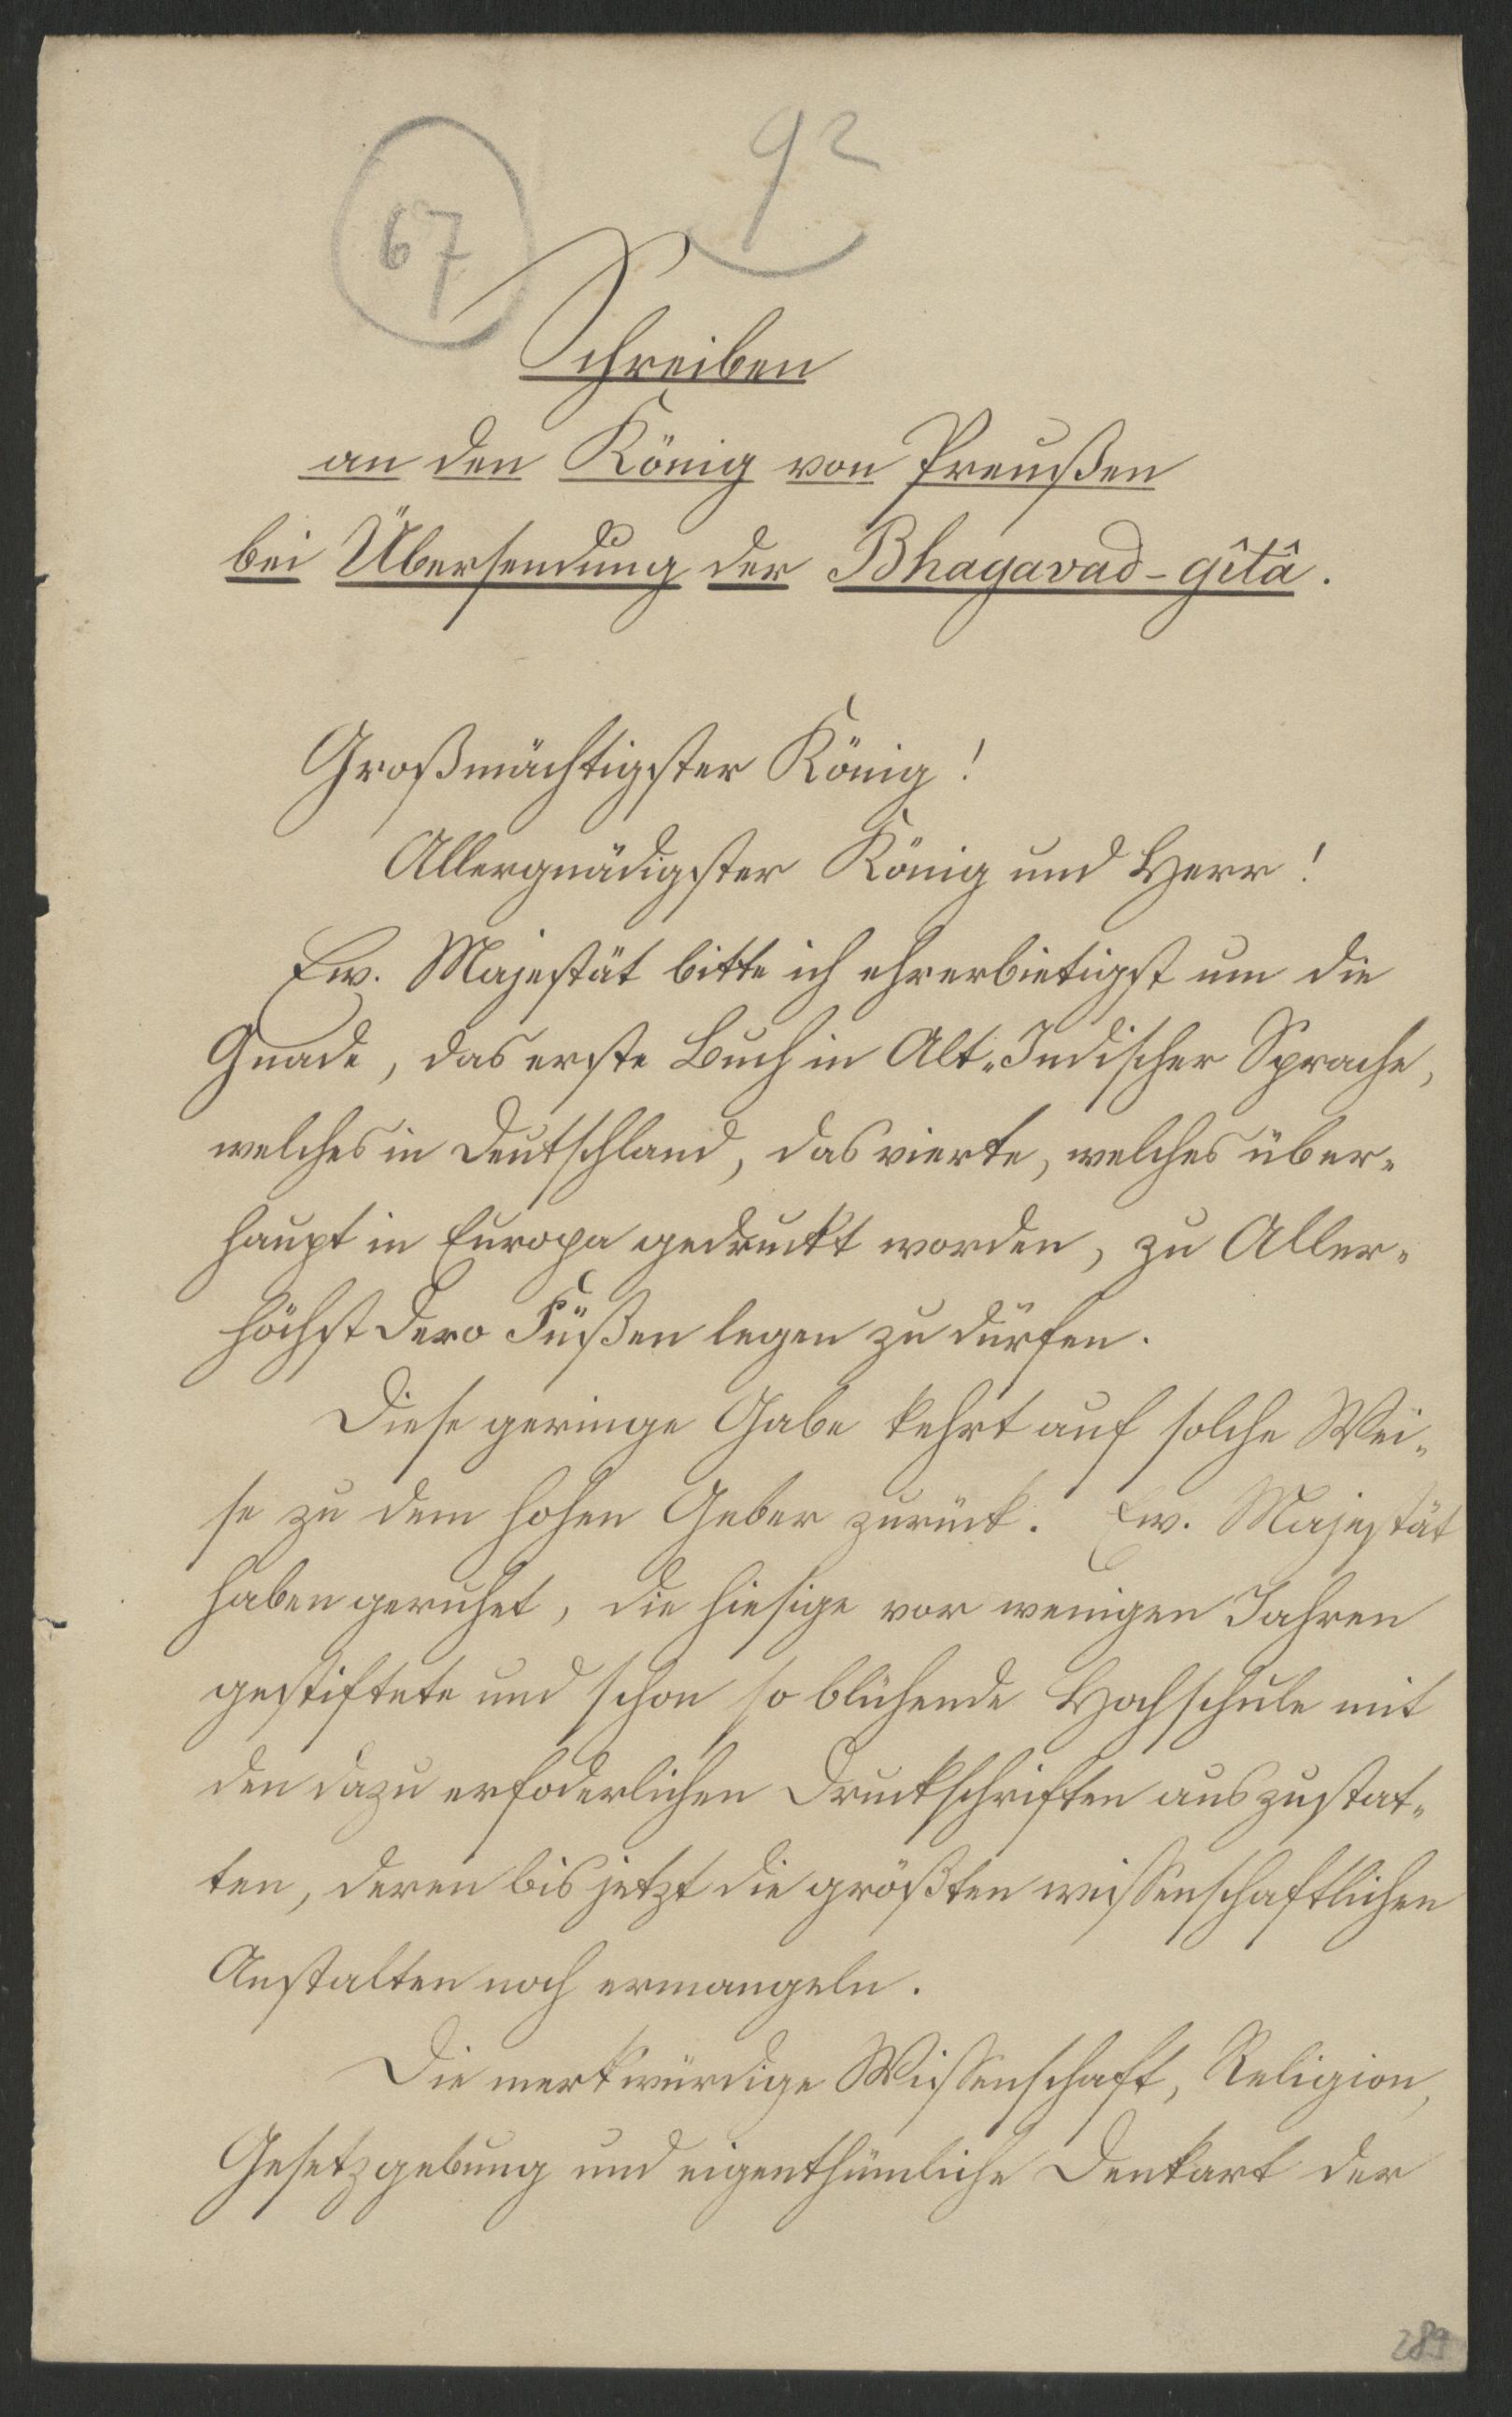 92
67
Schreiben
an den König von Preußen
bei Übersendung der Bhagavad-gîtâ.
Großmächtigster König!
Allergnädigster König und Herr!
Ew. Majestät bitte ich ehrerbietigst um die
Gnade, das erste Buch in Alt-Indischer Sprache,
welches in Deutschland, das vierte, welches über-
haupt in Europa gedruckt worden, zu Aller-
höchst Dero Füßen legen zu dürfen.
Diese geringe Gabe kehrt auf solche Wei-
se zu dem hohen Geber zurück. Ew. Majestät
haben geruhet, die hiesige vor wenigen Jahren
gestiftete und schon so blühende Hochschule mit
den dazu erfoderlichen Druckschriften auszustat-
ten, deren bis jetzt die größten wissenschaftlichen
Anstalten noch ermangeln.
Die merkwürdige Wissenschaft, Religion,
Gesetzgebung und eigenthümliche Denkart der
289